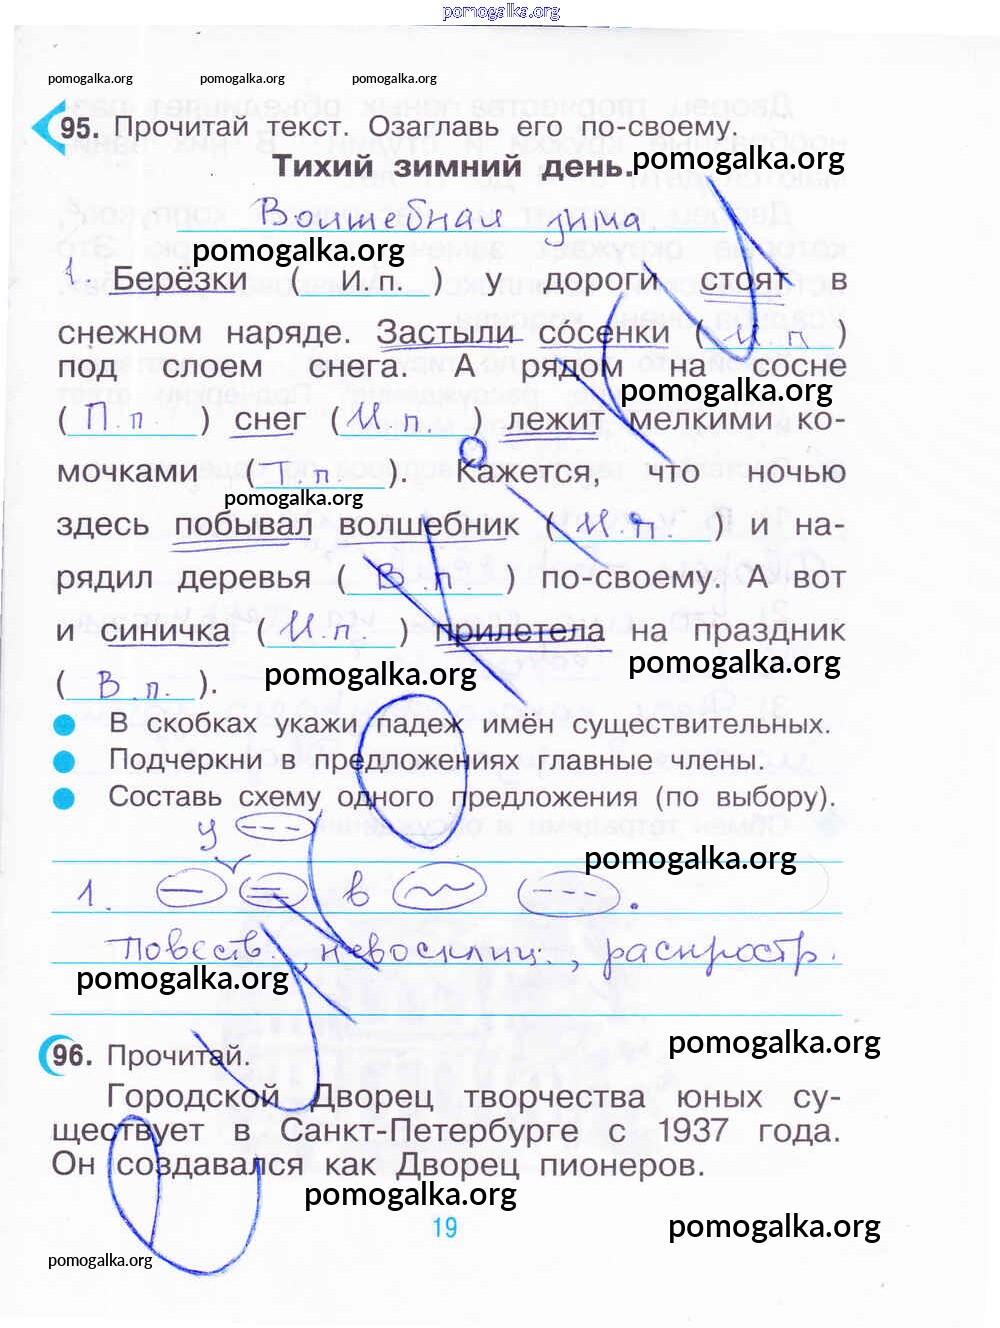 pomogalka.org
pomogalka.org pomogalka.org pomogalka.org
95. Прочитай текст. Озаглавь его по-своему.
Тихий зимний день.
pomogalka.org
Волшебная зима
pomogalka.org
1. Берёзки ( И.п. ) у дороги стоят в
снежном наряде. Застыли сосенки ( И.п. )
под слоем снега. А рядом на сосне
pomogalka.org
( П.п. ) снег ( И.п. ) лежит мелкими ко-
мочками ( Т.п. ). Кажется, что ночью
pomogalka.org
здесь побывал волшебник ( И.п. ) и на-
рядил деревья ( В.п. ) по-своему. А вот
и синичка ( И.п. ) прилетела на праздник
pomogalka.org pomogalka.org
( В.п. ).
В скобках укажи падеж имён существительных.
Подчеркни в предложениях главные члены.
Составь схему одного предложения (по выбору).
у
pomogalka.org
1. в .
Повеств., невосклиц., распростр.
pomogalka.org
pomogalka.org
96. Прочитай.
Городской Дворец творчества юных су-
ществует в Санкт-Петербурге с 1937 года.
Он создавался как Дворец пионеров.
pomogalka.org
19
pomogalka.org
pomogalka.org